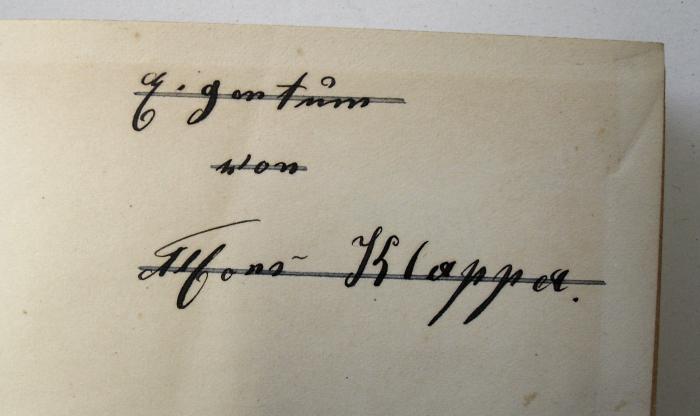 Eigentum
von
Alfons Klappa.